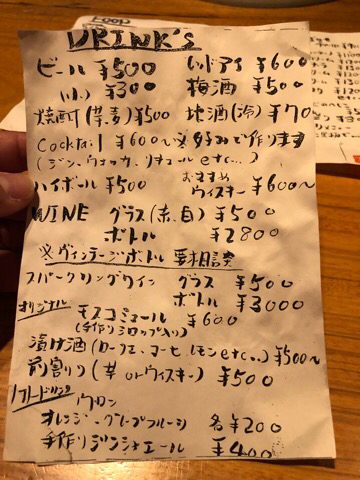 DRINK's
ビール ¥500 レッドアイ ¥600
(小) ¥300 梅酒 ¥500
焼酎(芋.麦)¥500 地酒(冷) ¥70
Cocktail ¥600〜 ※お好みで作ります
(ジン、ウォッカ、リキュール etc...)
ハイボール ¥500 おすすめ
ウィスキー ¥600〜
WINE グラス(赤.白) ¥500
ボトル ¥2800
※ヴィンテージボトル 要相談
スパークリングワイン グラス ¥500
ボトル ¥3000
オリジナル モスコミュール ¥600
(手作りシロップ入り)
漬け酒(ローリエ、コーヒ レモン etc...) ¥500〜
前割り(芋 or ウィスキー) ¥500
ソフトドリンク
ウーロン
オレンジ-グレープフルーツ 各¥200
手作りジンジャエール ¥400
Food